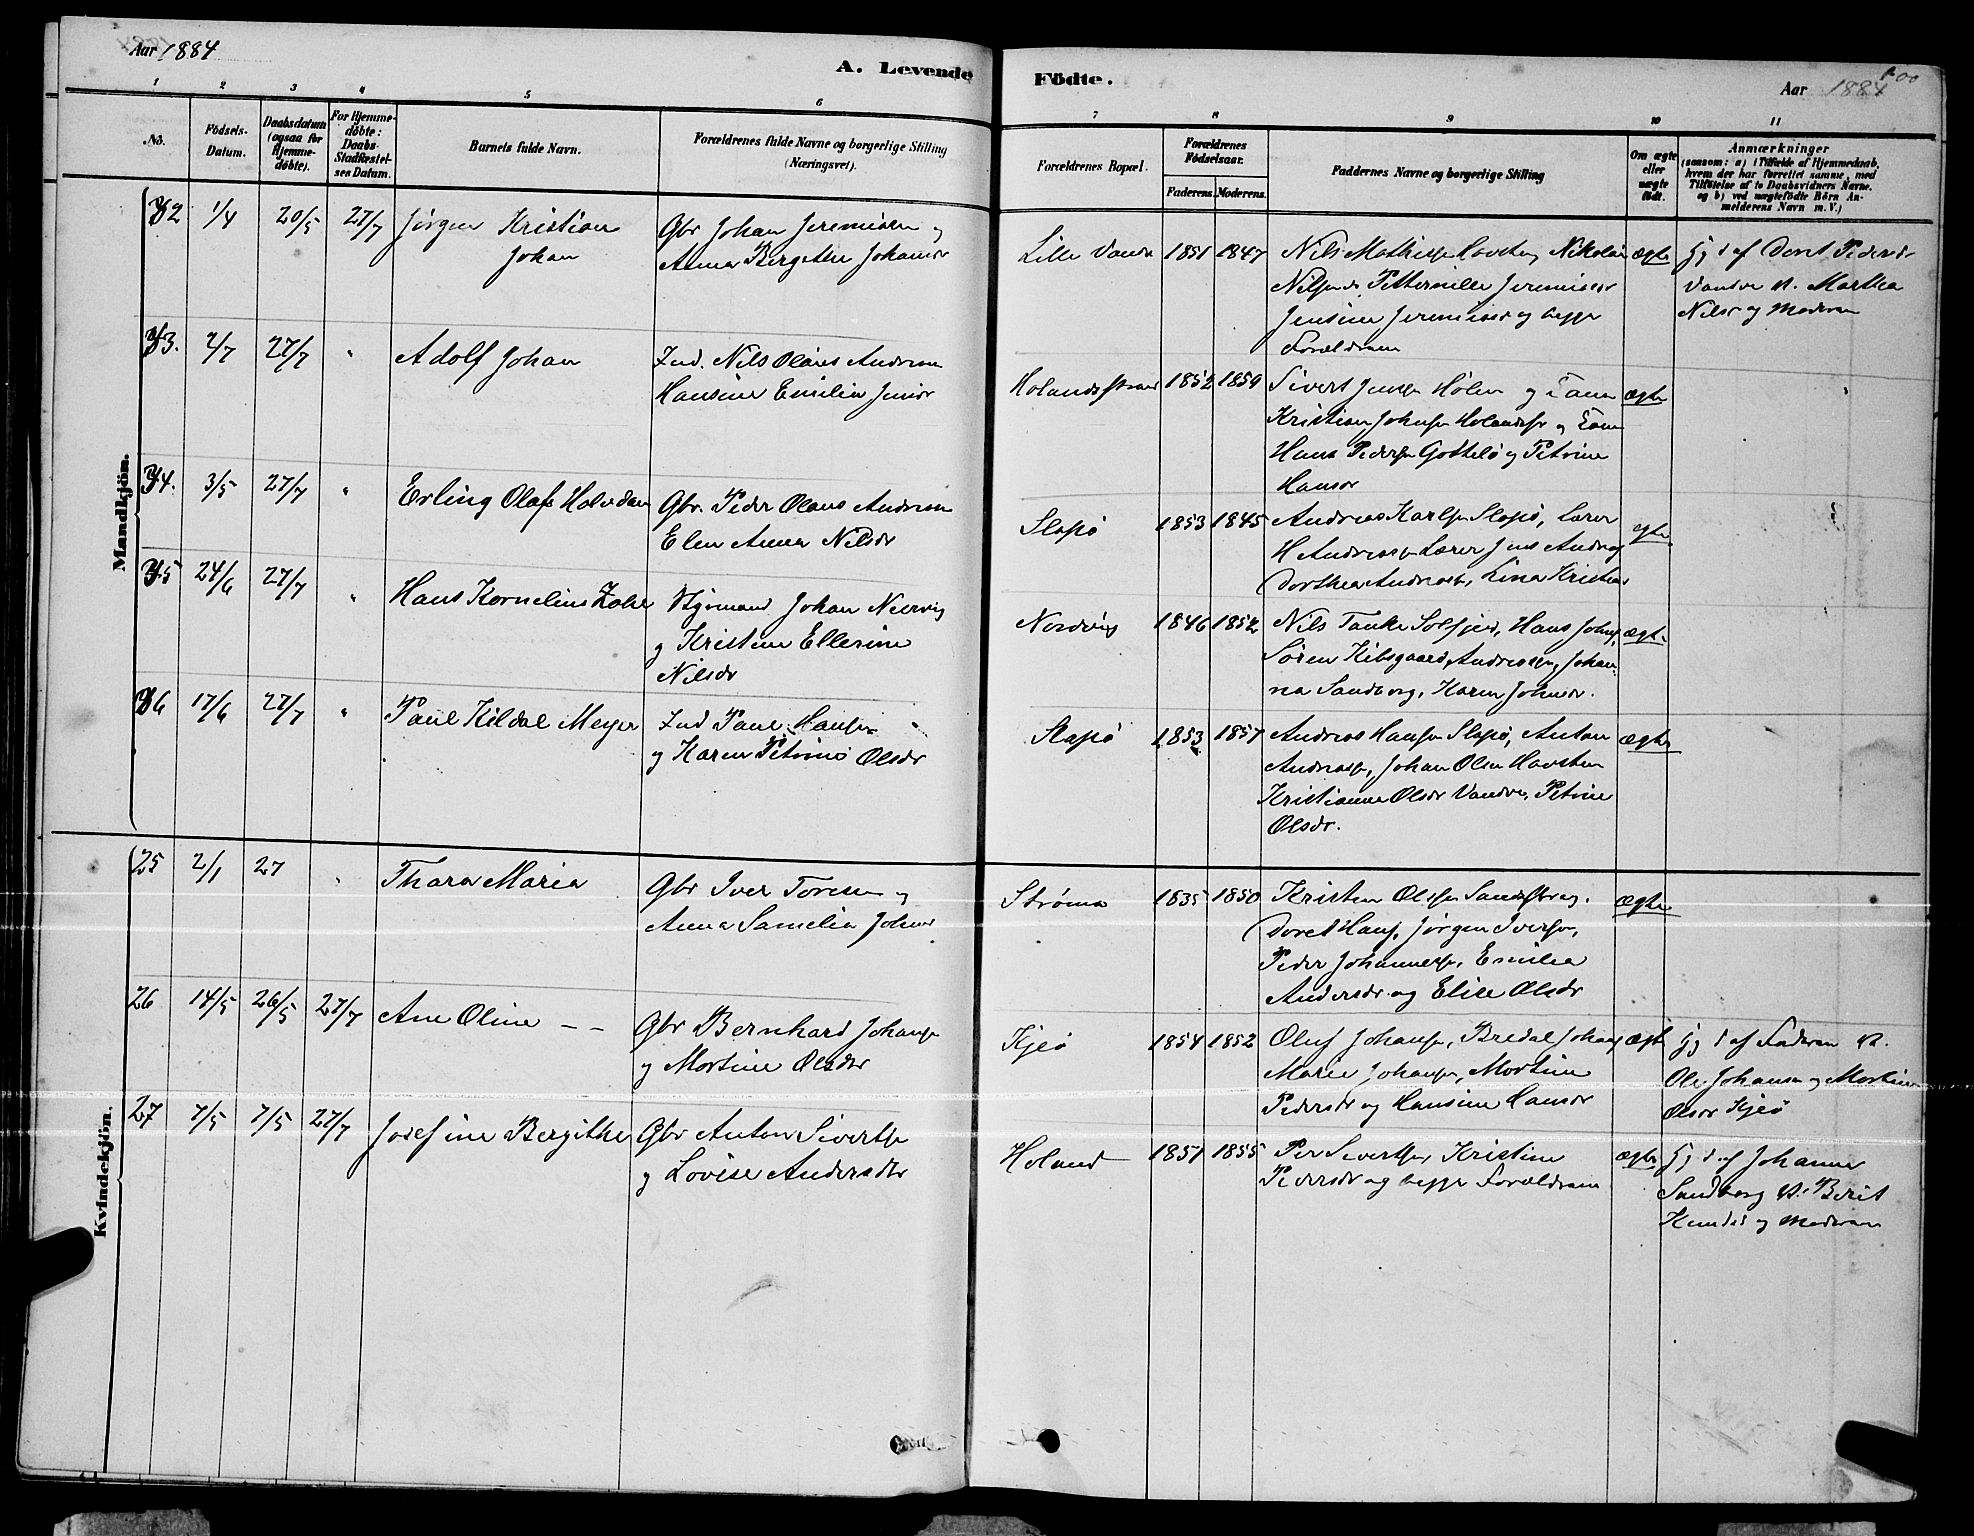 Aar 1884
A. Levende
Födte.
Aar 1884
100
1 2 3 4 5 6
7 8 9 10 11
No.
Födsels-Datum.
Daabsdatum (ogsaa for Hjemme-döbte).
For Hjemme-döbte: Daabs-Stadfæstel-ses Datum.
Barnets fulde Navn.
Forældrenes fulde Navne og borgerlige Stilling
(Næringsvei).
Forældrenes Bopæl.
Forældrenes Födselsaar.
Faderens. Moderens.
Faddernes Navne og borgerlige Stilling
Om ægte eller uægte födt.
Anmærkninger
(saasom: a) i Tilfælde af Hjemmedaab,
hvem der har forrettet samme, med
Tilföielse af to Daabsvidners Navne.
og b) ved uægtefödte Börn An-
melderens Navn m. V.)
Mandkjön.
32 1/4 20/5 27/7 Jørgen Kristian
Johan
Gbr Johan Jeremisen og
Anna Bergithe Johansdr
Lille Vandve 1851 1847 Nils Mathisen Havsten, Nikolai
Nilsen, Petternille Jeremisdr
Jensine Jeremisdr og begge
Forældrene
ægte
Hj d af Doret Pedersdr
Vandve V. Martha
Nilsdr og Moderen
33. 2/7 27/7 " Adolf Johan
Ind. Nils Olaus Andersen
Hansine Emilie Jensdr
Holandsstrand 1852 1859 Sivert Jensen Holen og
Kristian Johnsen Holandsstr og
Hans Pedersen og Petrine
Hansdr
ægte
34. 3/5 27/7 " Erling Olaf Halvdan
Gbr. Peder Olaus Andersen
Elen Anna Nilsdr
Slapø 1853 1845 Andreas Karlsen Slapø, Lærer
H Andreasen Lærer Jens Andreas
Dorthea Andreasen, Lina Kristensdr
ægte
35 24/6 27/7 " Hans Kornelius
Johan
og Kristine Ellerine
Nilsdr
Nordvig 1846 1852 Nils Tanke Solfjeld, Hans Johnsen
Søren Kibsgaard, Andreasen, Johan-
na Sandberg, Karen Johnsdr.
ægte
36 17/6 27/7 " Paul Kildal Meyer
Ind Paul Hansen
og Karen Petrine Olsdr
Slapø 1853 1857 Andreas Hansen Slapø, Anton
Andreasen, Johan Olsen Havsten
Kristianna Olsdr Vandve, Petrine
Olsdr.
ægte
Kvindekjön.
25 2/1 27 " Thora Maria
Gbr Iver Toresen og
Anna Samelia Johnsdr
Strøma 1835 1850 Kristen Olssen
Doret Hans, Jørgen Iversen,
Peder Johannesen, Emilie
Andersdr og Elise Olsdr
ægte
26 14/5 26/5 27/7 Ane Oline - -
Gbr Bernhard Johansen
og Mortine Olsdtr
Kjeø 1854 1852 Oluf Johansen, Bredal Johansen
Marie Johansen, Mortine
Pedersdr og Hansine Hansdr
ægte
Hj d af Faderen V.
Ole Johansen og Mortine
Olsdr Kjeø
27 7/5 7/5 27/7 Josefine Bergithe
Gbr Anton Sivertsen
og Lovise Andersdtr
Holand 1851 1855 Per Sivertsen, Kristine
Pedersdr og begge Forældrene
ægte
Hj d af Johanna
Sandberg V. Berit
Knudsd og Moderen